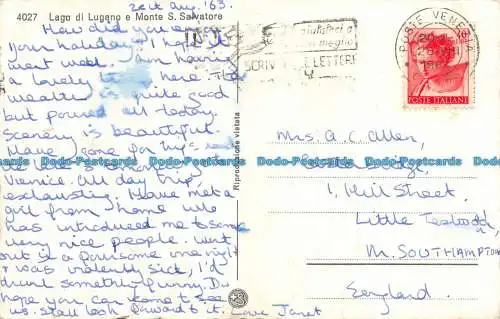 4027 Lago di Lugano e Monte S. Salvatore
26th Aug. '63.
How did you
your holiday? I hope it
went well. I am having
a lovely time here. The
weather is quite good
but poured all today.
Scenery is beautiful.
Have gone for
Venice. All day trip,
exhausting. Have met a
girl from home who
has introduced me to some
very nice people. Went
out in a foursome one night
& was violently sick, I'd
drunk something funny. Do
hope you can come to see
us. Shall look forward to it. Love Janet
Riproduzione vietata
aiutateci a
meglio
SCRIV LE LETTERE
POSTE VENEZIA
POSTE ITALIANE
Mrs. A. C. Allen,
1, Hill Street,
Little Testwood,
Nr. SOUTHAMPTON
England.
Dodo-Postcards Dodo-Postcards Dodo-Postcards Dodo-Postcards
Dodo-Postcards Dodo-Postcards Dodo-Postcards Dodo-Postcards